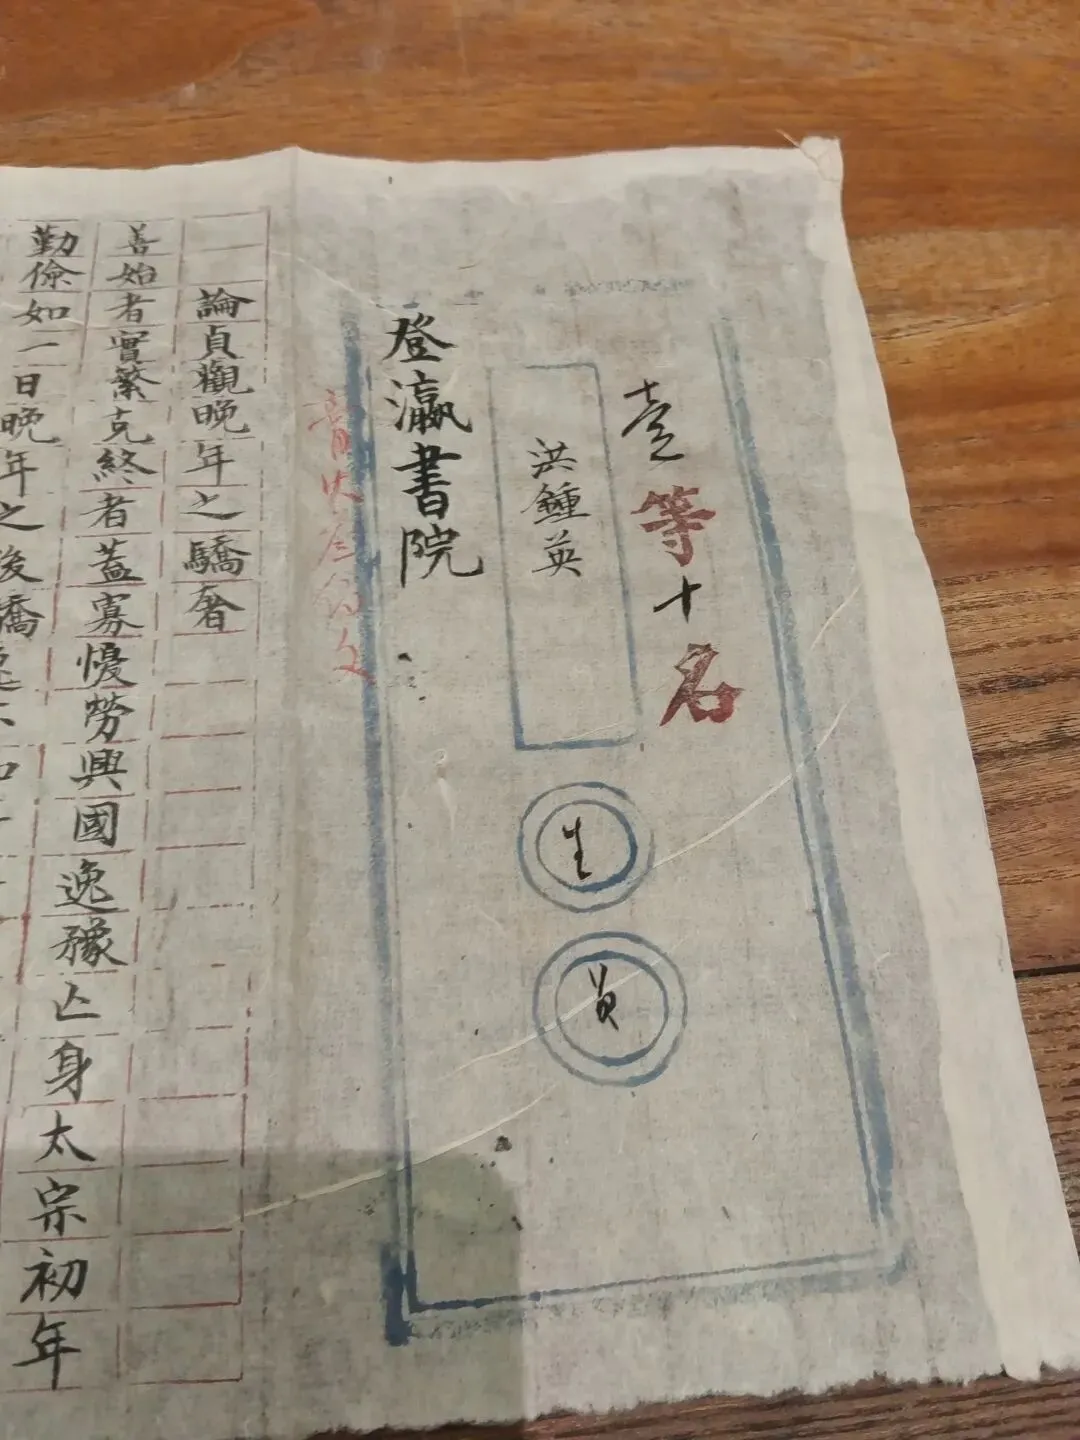 壹等十名
洪鍾英
生
員
登瀛書院
論貞觀晚年之驕奢
善始者實繁克終者蓋寡憂勞興國逸豫亡身太宗初年
勤儉如一日晚年之後